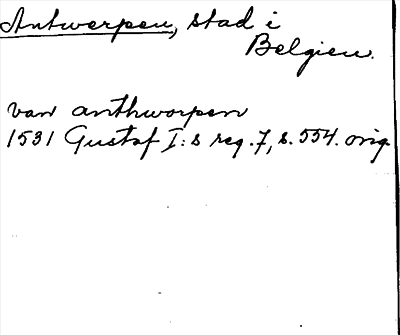 Antwerpen, stad i
Belgien.
van anthworpen
1531 Gustaf I:s reg. 7, s. 554. orig.